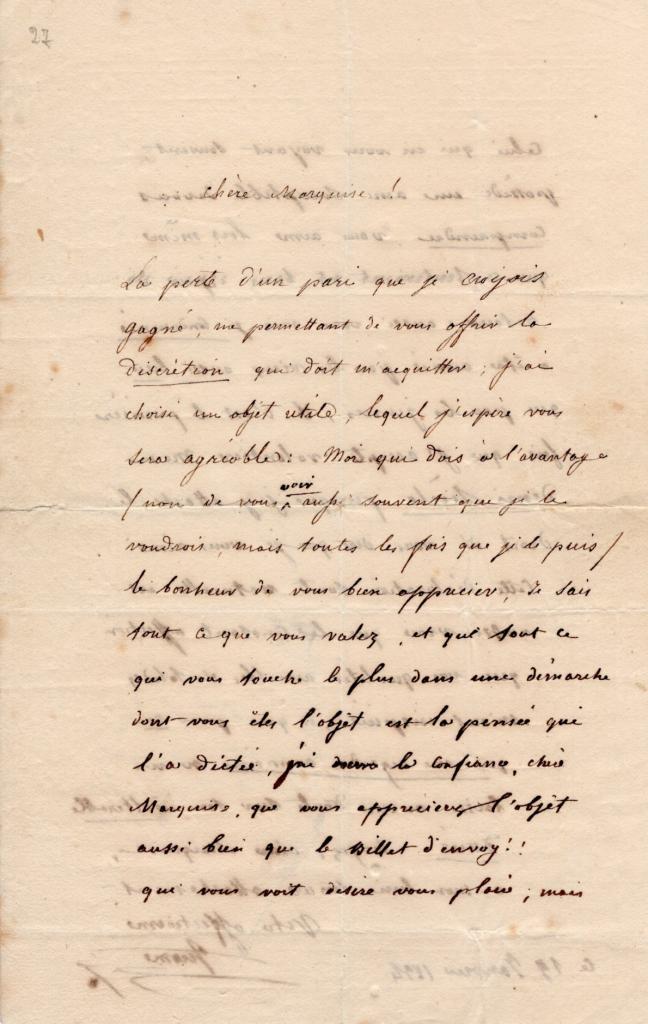 27
Chère Marquise!
La perte d'un pari que je croyois
gagné, me permettant de vous offrir la
discrétion qui doit m'acquitter; j'ai
choisi un objet utile, lequel j'espère vous
sera agréable: Moi qui dois à l'avantage
(non de vous voir aussi souvent que je le
voudrois, mais toutes les fois que je le puis)
le bonheur de vous bien apprécier, Je sais
tout ce que vous valez, et que tout ce
qui vous touche le plus dans une démarche
dont vous êtes l'objet est la pensée qui
l'a dictée, j'ai la confiance, chère
Marquise, que vous apprécierez l'objet
aussi bien que le Billet d'envoy!!
qui vous voit desire vous plaire; mais